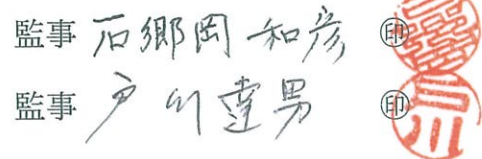 監事 石郷岡 和彦 ㊞
監事 戸川達男 ㊞